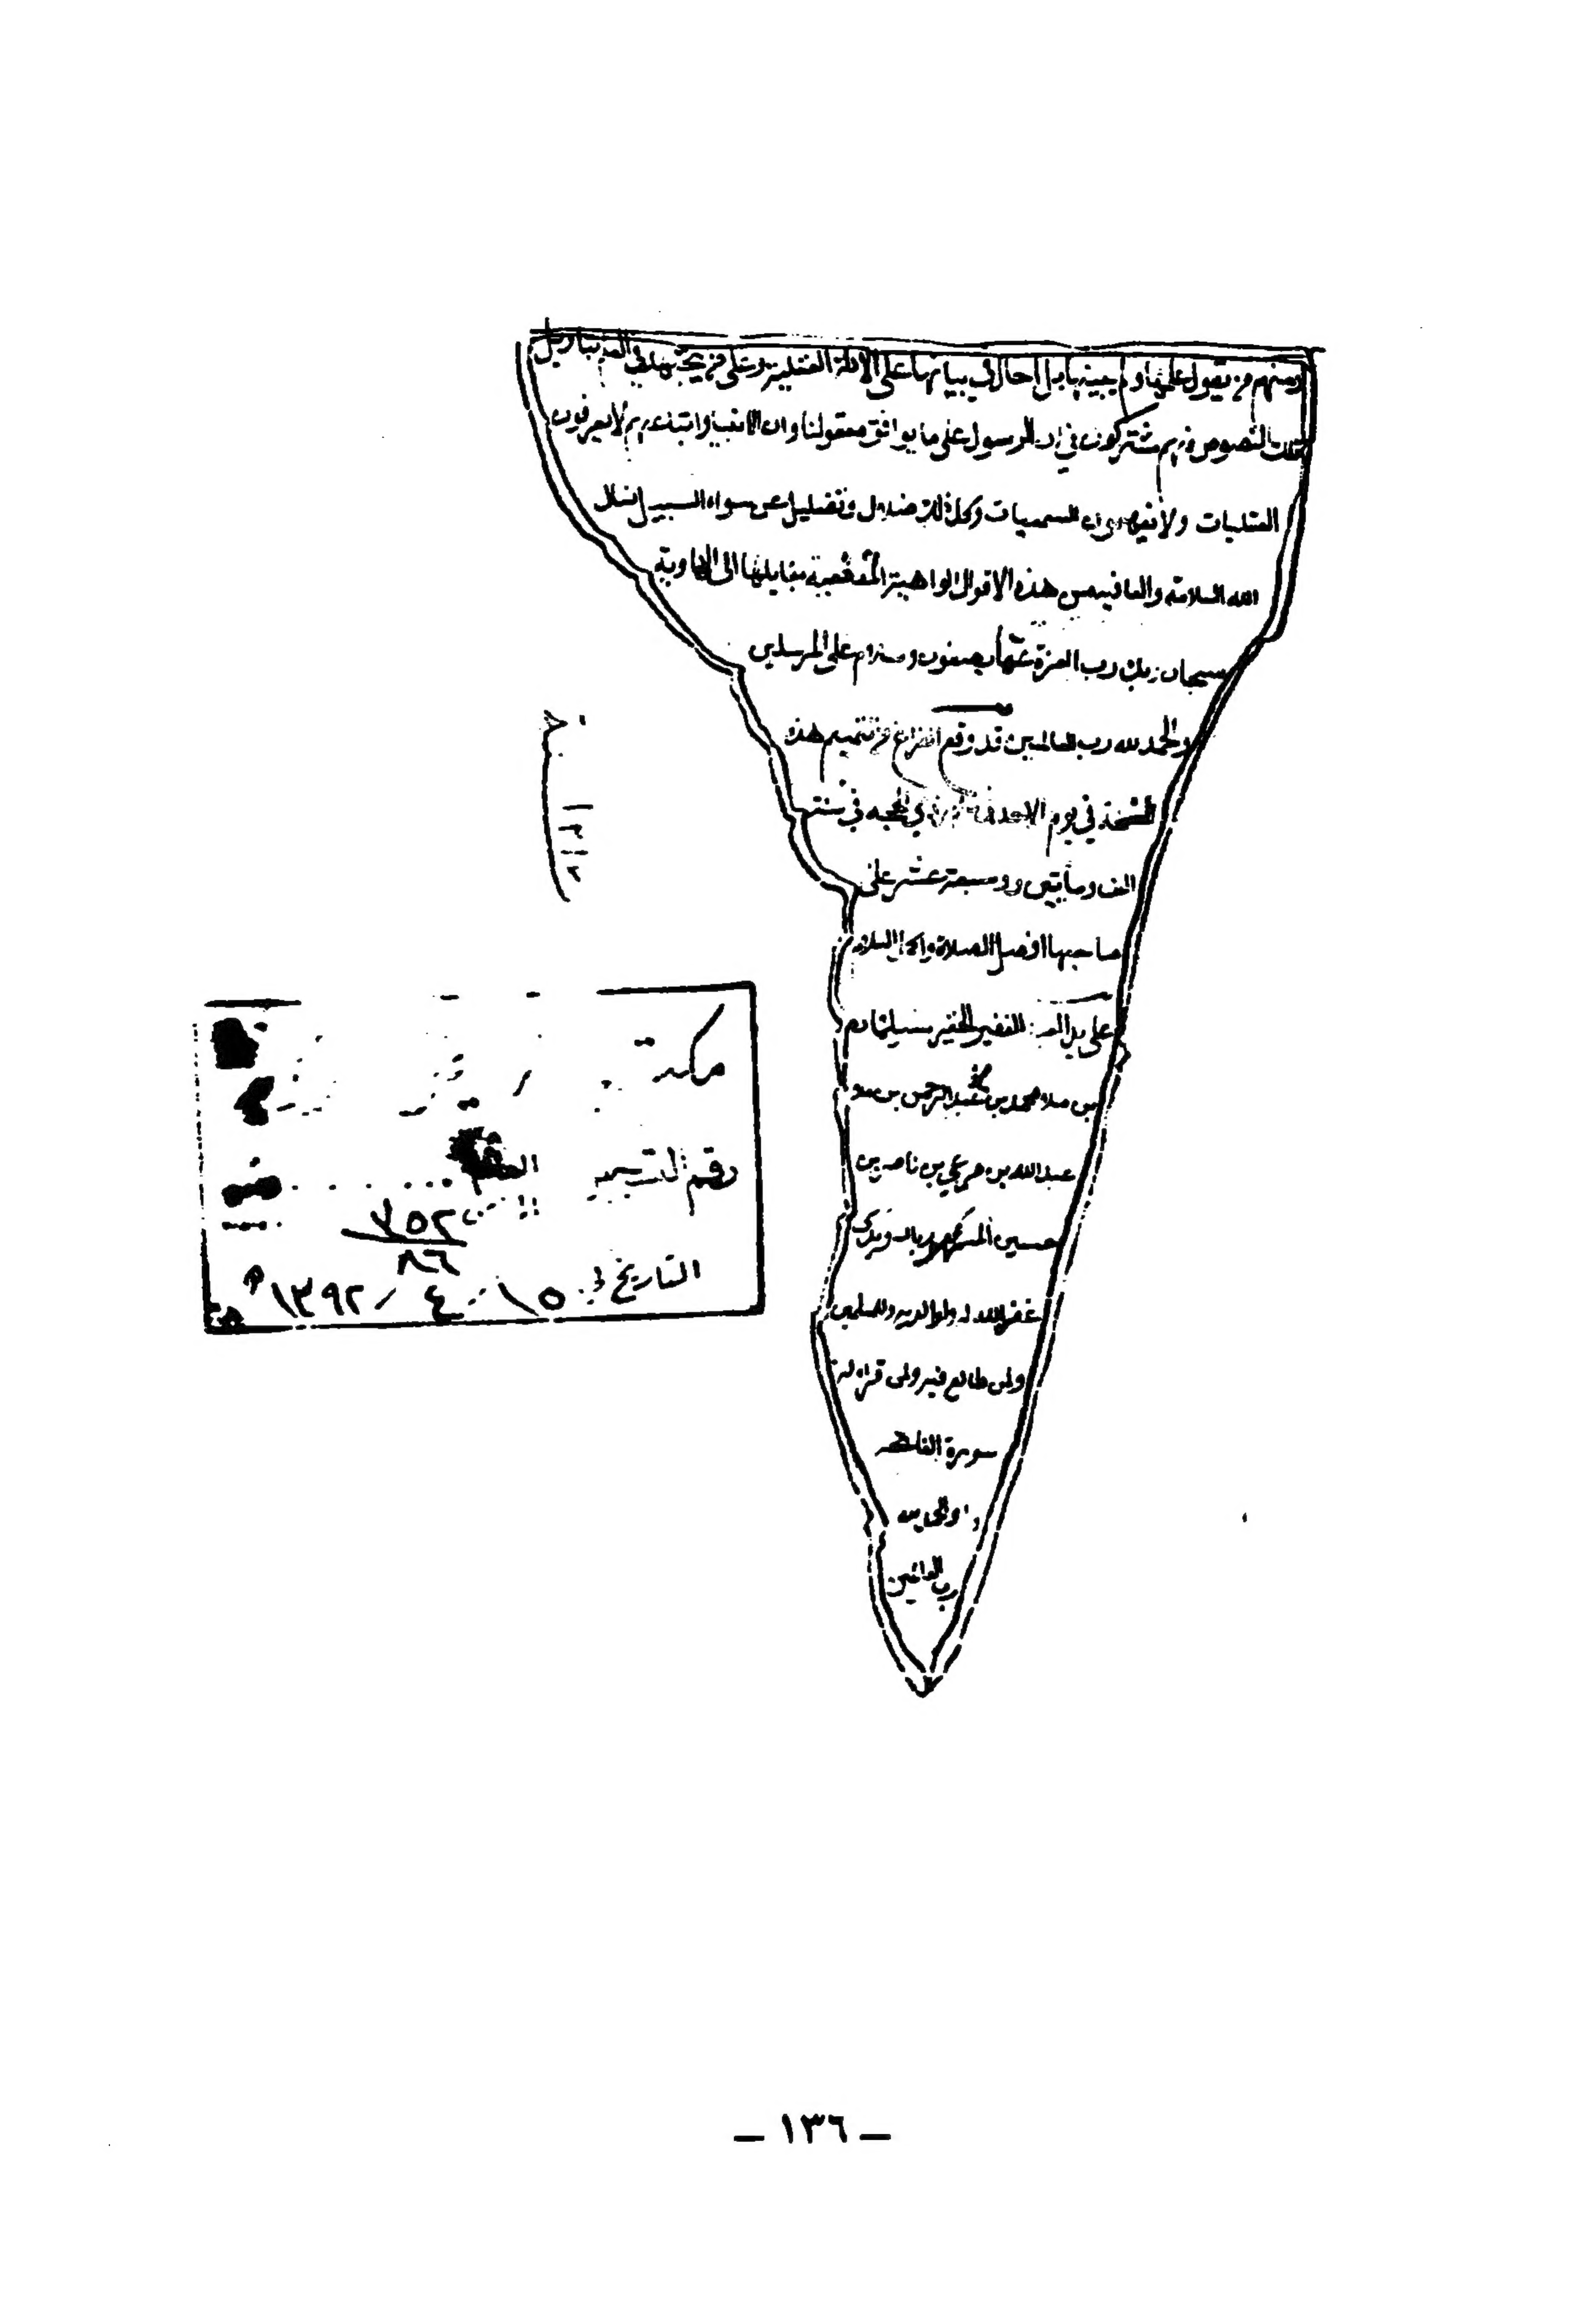 ومنهم من يقول علمها ولم يبينها بل احال في بيانها على الادلة العقلية وعلى من يجتهد في العلم بتاويل
تلك النصوص فهم مشتركون في ان الرسول على ما يوافق معقولنا وان الانبياء واتباعهم لا يعرفون
العقليات ولا يفهمون السمعيات وكل ذلك ضلال وتضليل عن سواء السبيل نسال
الله السلامة والعافية من هذه الاقوال الواهية المفضية بقايلها الى الهاوية
سبحان ربك رب العزة عما يصفون وسلام على المرسلين
والحمد لله رب العالمين قد وقع الفراغ من تتميم هذه
النسخة في يوم الاحد في ذي الحجه في سنة
الف ومأتين وسبعة عشر على
صاحبها افضل الصلاة والسلام
على يد الفقير الحقير سليمان
بن محمد بن عبد الرحمن بن
عبد الله بن مرعي بن ناصر بن
حسين المشهور
غفر الله له ولوالديه وللمسلمين
ولمن طالع فيه ولمن قراء له
سورة الفاتحه
والحمد لله
رب العالمين
مكتبة
رقم التسجيل
٧٥٢
٨٦
التاريخ ١٥ / ٤ / ١٣٩٢ه
– ١٣٦ –